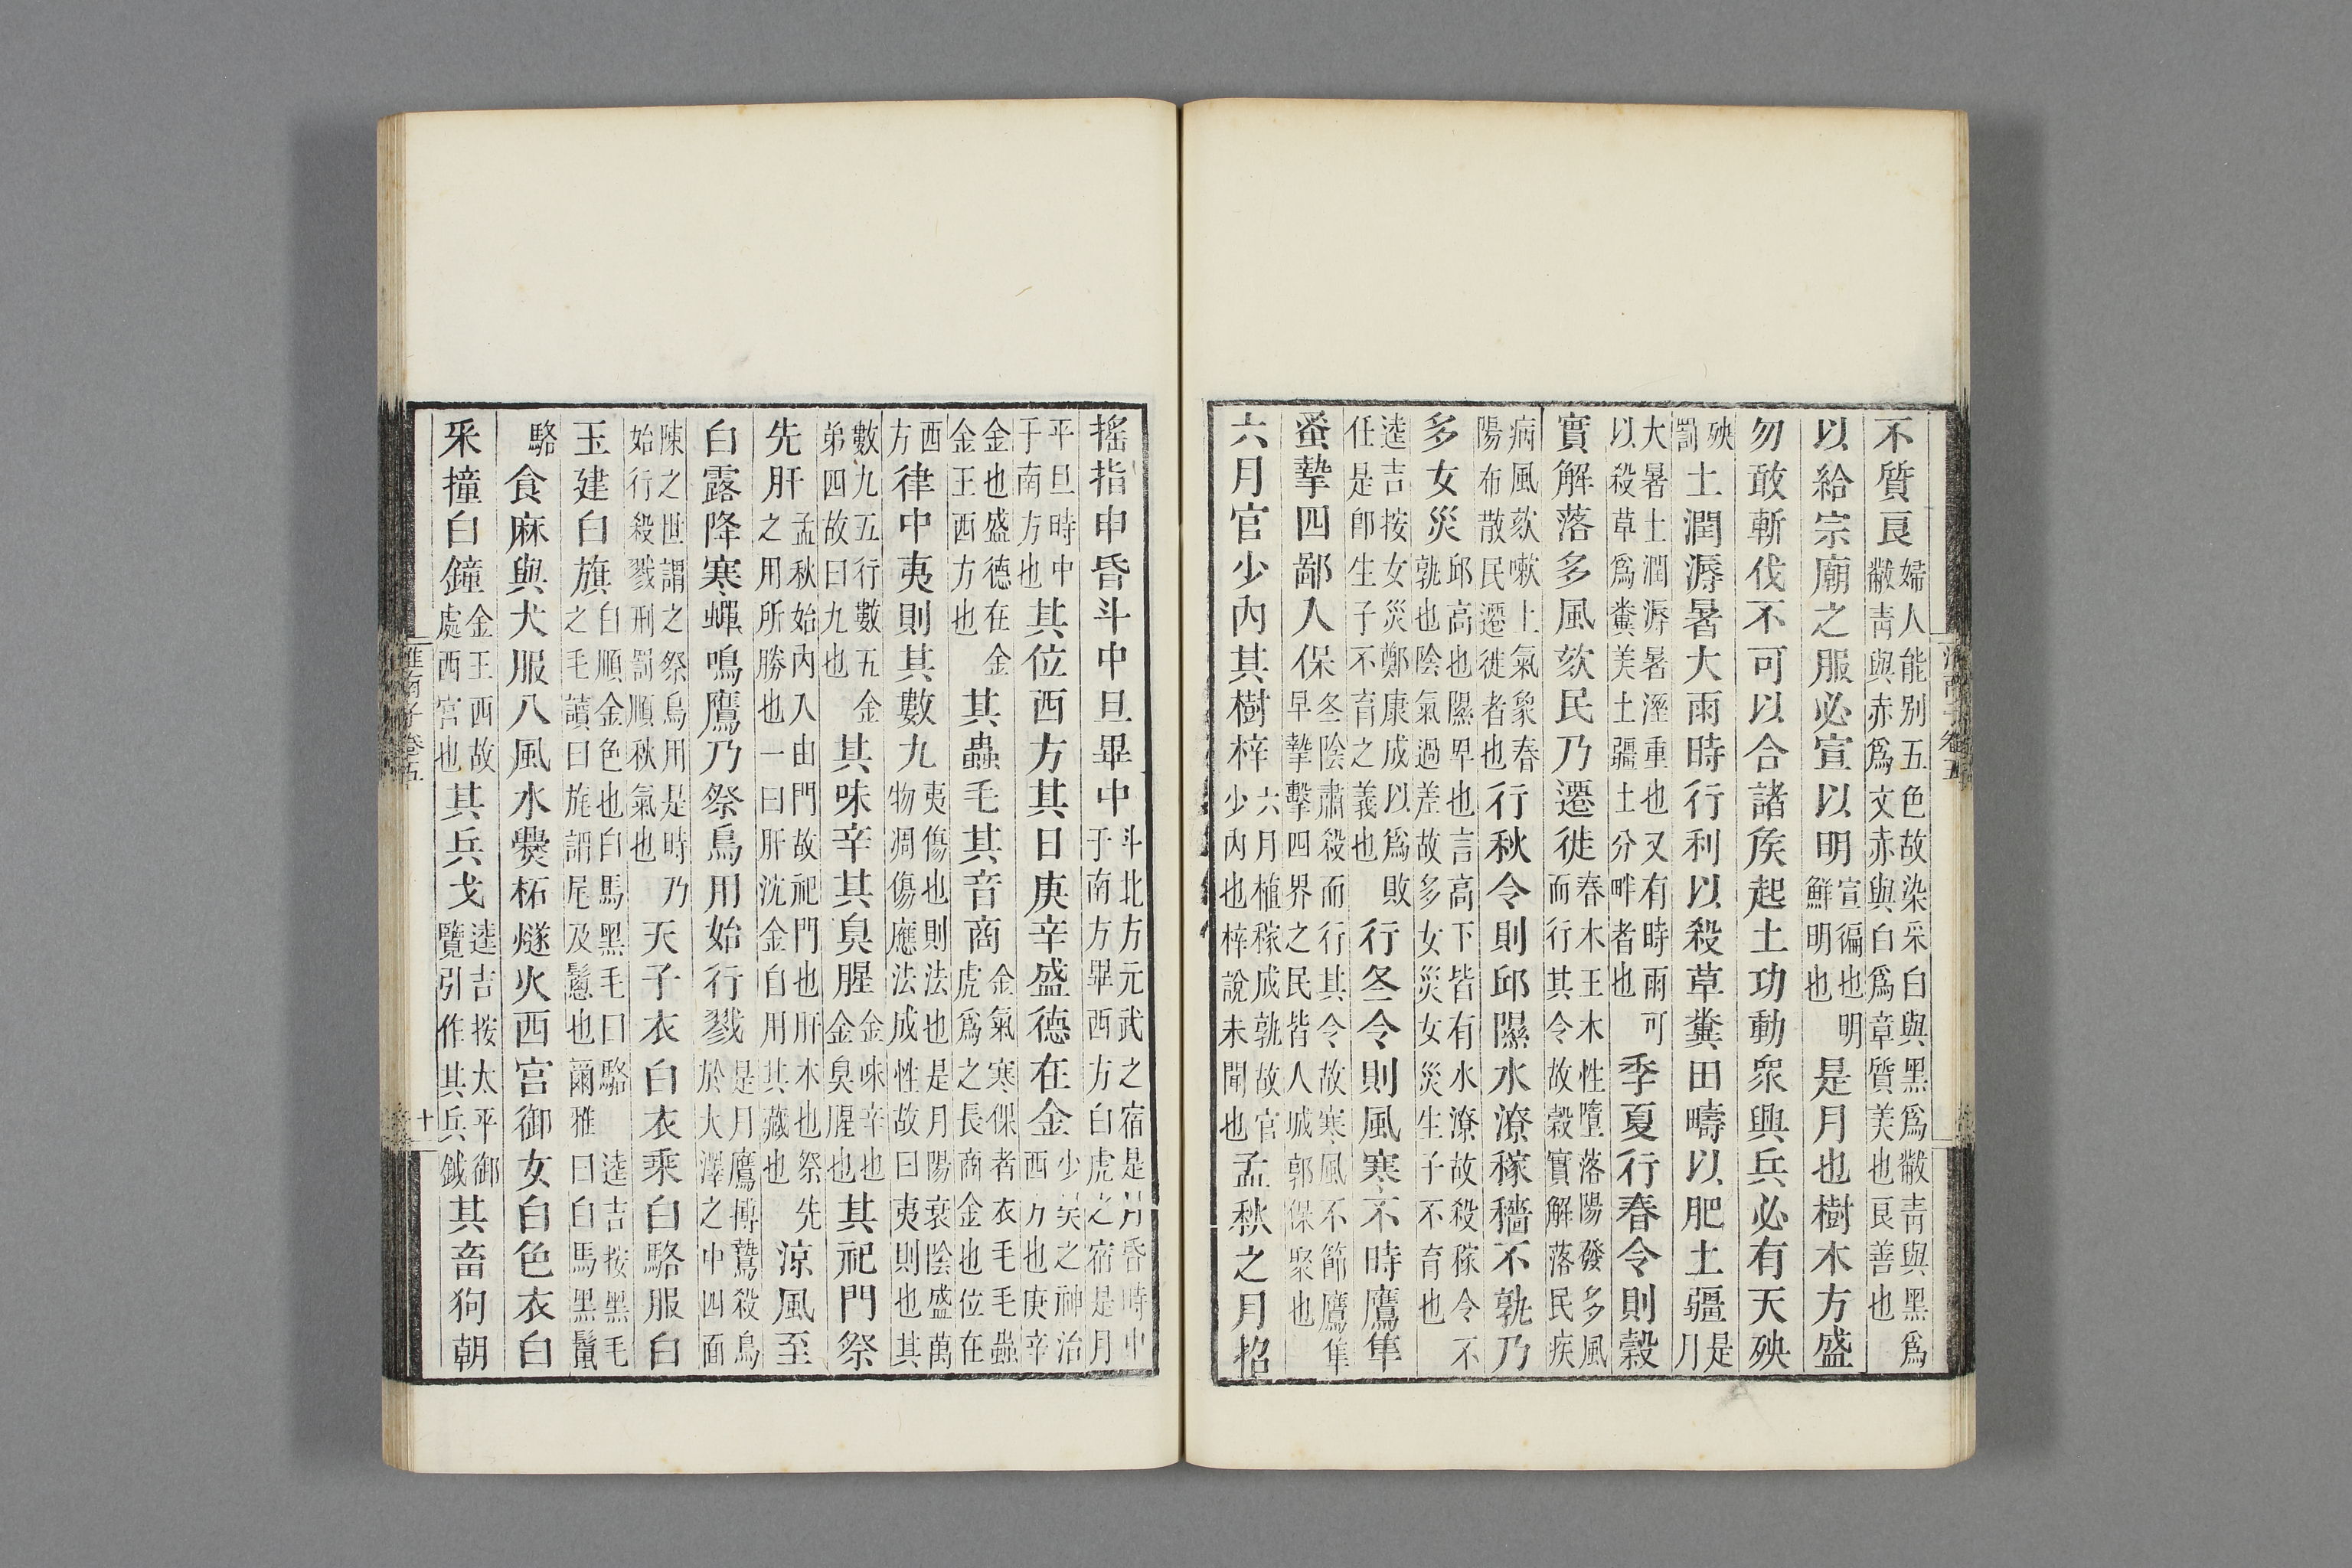 不質良婦人能别五色故染采白與黑爲黻靑與黑爲黻靑與赤爲文赤與白爲章質美也良善也
以給宗廟之服必宣以明宣徧也明鮮明也是月也樹木方盛
勿敢斬伐不可以合諸矦起土功動眾興兵必有天殃
殃罰土潤溽暑大雨時行利以殺草糞田疇以肥土疆是月
大暑土潤溽暑溼重也又有時雨可以殺草爲糞美土疆土分畔者也季夏行春令則穀
實解落多風欬民乃遷徙春木王木性墮落陽發多風而行其令故穀實解落民疾
病風欬嗽上氣象春陽布散民遷徙者也行秋令則邱隰水潦稼穡不孰乃
多女災邱高也隰卑也言高下皆有水潦故殺稼令不孰也陰氣過差故多女災女災生子不育也
逵吉按女災鄭康成以爲敗任是卽生子不育之義也行冬令則風寒不時鷹隼
蚤摯四鄙人保冬陰肅殺而行其令故寒風不節鷹隼早摯擊四界之民皆人城郭保聚也
六月官少內其樹梓六月植稼成孰故官少內也梓說未聞也孟秋之月招
淮南子卷五
搖指申昏斗中旦畢中斗北方元武之宿是月昏時中于南方畢西方白虎之宿是月
平旦時中于南方也其位西方其日庚辛盛德在金少昊之神治西方也庚辛
金也盛德在金金王西方也其蟲毛其音商金氣寒倮者衣毛毛蟲虎爲之長商金也位在
西方律中夷則其數九夷傷也則法也是月陽衰陰盛萬物凋傷應法成性故曰夷則也其
數九五行數五金弟四故曰九也其味辛其臭腥金味辛也金臭腥也其祀門祭
先肝孟秋始內入由門故祀門也肝木也祭先之用所勝也一曰肝沈金自用其藏也涼風至
白露降寒蟬鳴鷹乃祭鳥用始行戮是月鷹搏鷙殺鳥於大澤之中四面
陳之世謂之祭鳥用是時乃始行殺戮刑罰順秋氣也天子衣白衣乘白駱服白
玉建白旗白順金色也白馬黑毛曰駱逵吉按黑毛之毛讀曰旄謂尾及鬛也爾雅曰白馬黑鬣
駱食麻與犬服八風水爨柘燧火西宮御女白色衣白
采撞白鐘金王西故處西宮也其兵戈逵吉按太平御覽引作其兵鉞其畜狗朝
淮南子卷五 十